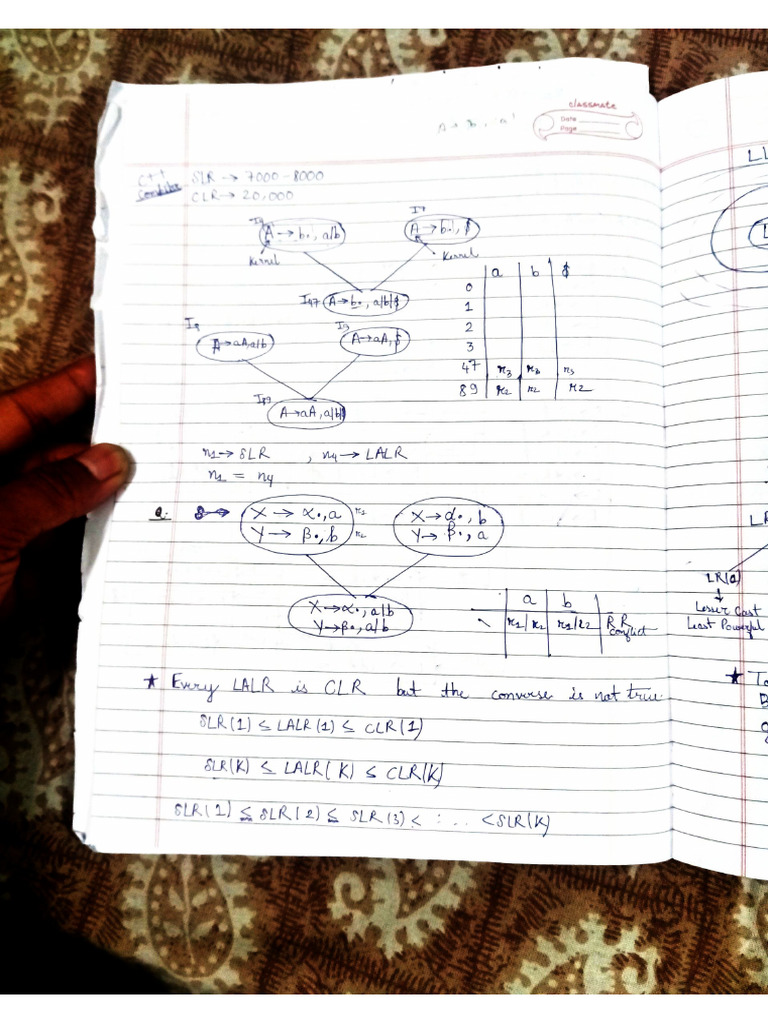 classmate
Date
Page
C++ SLR → 7000 - 8000
CLR → 20,000
I4
A → b•, a/b
I7
A → b•, $
Kernel
Kernel
I47 A → b•, a/b/$
I8
A → aA, a/b
I9
A → aA, $
I89
A → aA, a/b/$
a b $
0
1
2
3
47 r3 r3 r3
89 r2 r2 r2
n1 → SLR , n4 → LALR
n1 = n4
Q.
X → α•, a r1
Y → β•, b r2
X → α•, b
Y → β•, a
X → α•, a/b
Y → β•, a/b
a b
r1/r2 r1/r2 RR conflict
★ Every LALR is CLR but the converse is not true.
SLR(1) ≤ LALR(1) ≤ CLR(1)
SLR(K) ≤ LALR(K) ≤ CLR(K)
SLR(1) ≤ SLR(2) ≤ SLR(3) < : . . . < SLR(K)
LL
L
LR
LR(0)
↓
Lesser Cost
Least Powerful
★ To